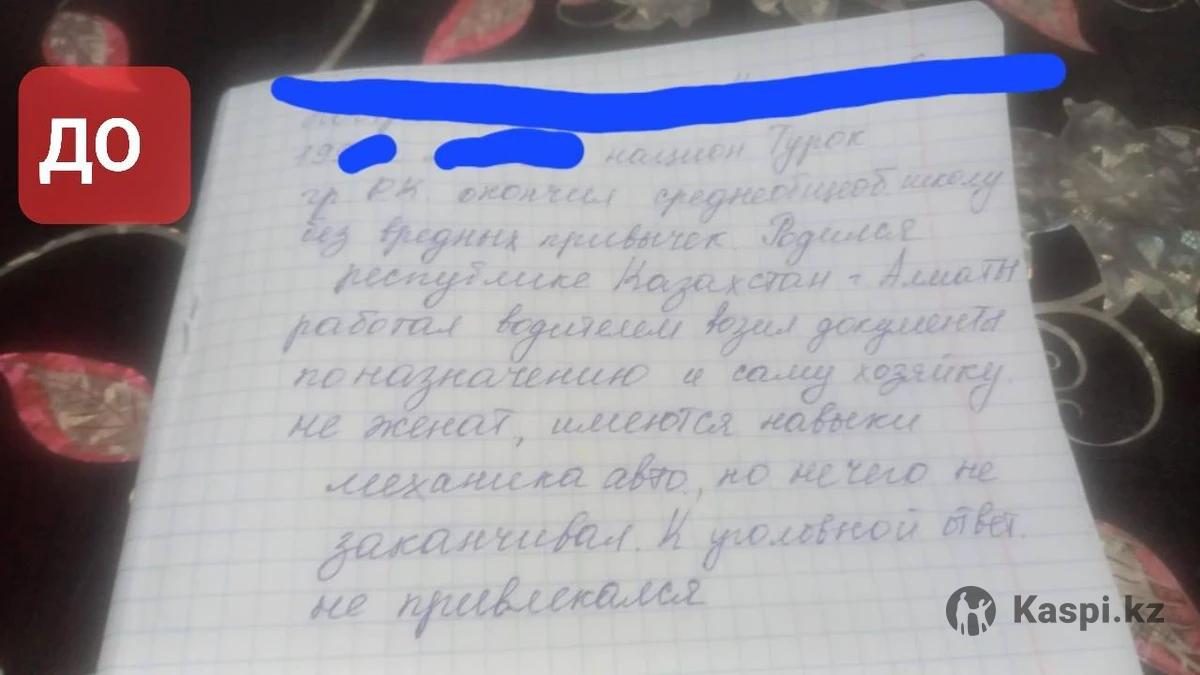 ДО
национ Турок
гр РК. окончил среднеобщеоб. школу
без вредных привычек. Родился
республике Казахстан г. Алматы
работал водителем возил документы
по назначению и саму хозяйку.
не женат, имеются навыки
механика авто, но нечего не
заканчивал. К уголовной ответ.
не привлекался
Kaspi.kz